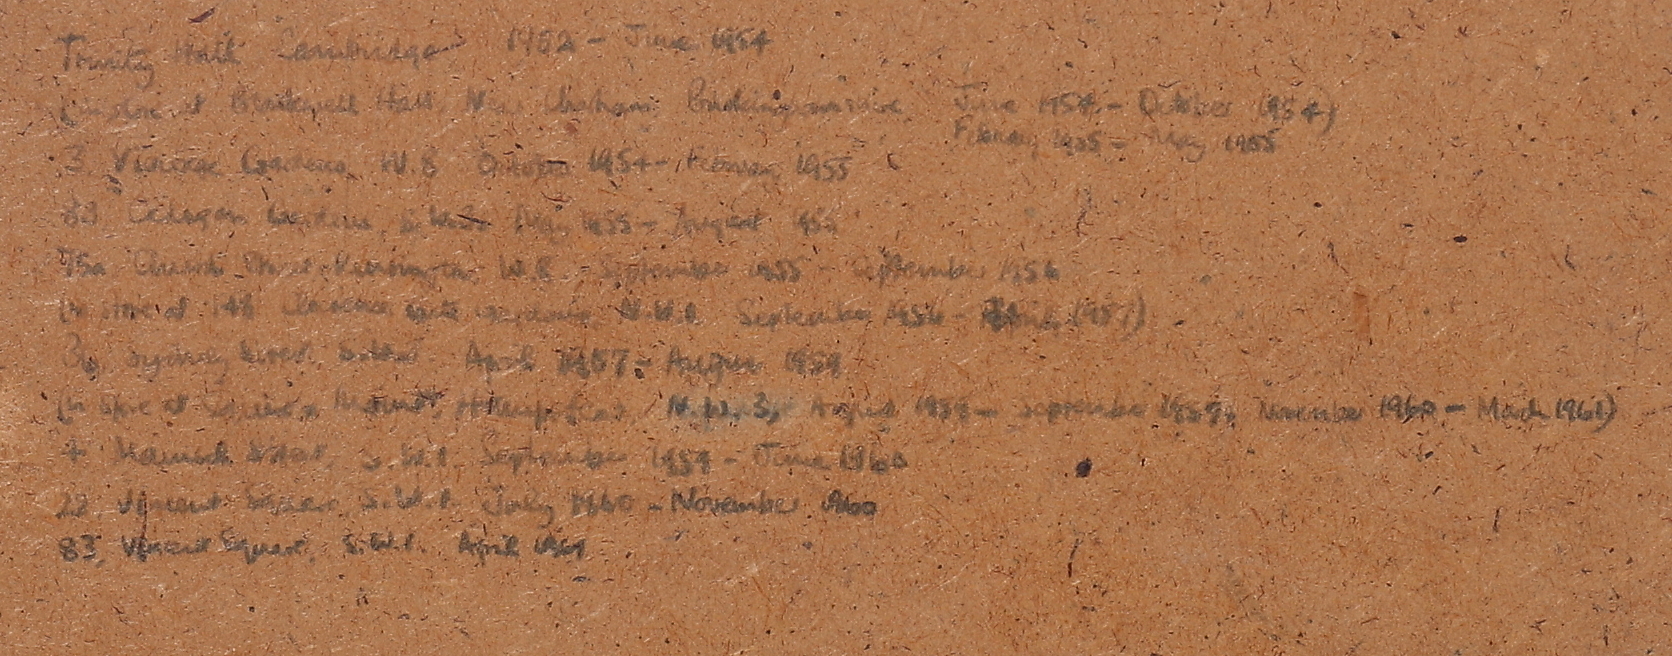 Trinity Hall Cambridge 1952 - June 1954
(in store at Hall, Buckinghamshire June 1954 - October 1954)
February 1955 - May 1955
3, Gardens, W.8 October 1954 - February 1955
Cadogan Gardens, S.W.3 May 1955 - August 1955
75a, Church Street, Kensington, W.8 - September 1955 - September 1956
(in store at 148 Clarence gate gardens, N.W.1 September 1956 - April 1957)
Sydney Street, S.W.3 April 1957 - August 1959
(in store at Mount, Hampstead, N.W.3, August 1959 - September 1959, November 1960 - March 1961)
4 Warwick S.W.1. September 1959 - June 1960
22, Vincent Square, S.W.1. July 1960 - November 1960
83, Vincent Square, S.W.1. April 1961